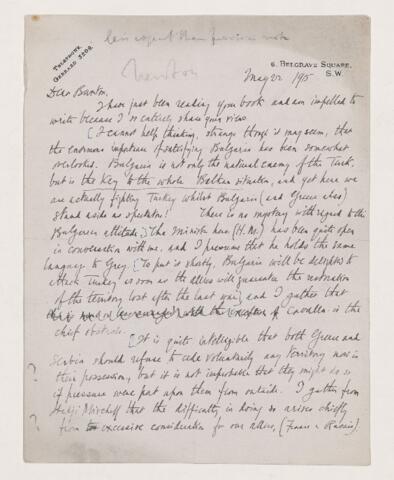 less urgent than previous note
TELEPHONE
GERRARD 3208.
6, BELGRAVE SQUARE,
S.W.
Newton
May 22 1915
Dear Buxton,
I have just been reading your book and am impelled to
write because I so entirely share your views
[I cannot help thinking, strange though it may seem, that
the enormous importance of satisfying Bulgaria has been somewhat
overlooked. Bulgaria is not only the natural enemy of the Turk,
but is the key to the whole Balkan situation, and yet here we
are actually fighting Turkey whilst Bulgaria (and Greece also)
stand aside as spectators! There is no mystery with regard to the
Bulgarian attitude.] The Minister here (H. M.) has been quite open
in conversation with me, and I presume that he holds the same
language to Grey. [To put it shortly, Bulgaria will be delighted to
attack Turkey as soon as the allies will guarantee the restoration
of the territory lost after the last war,] and I gather that
with the exception of Cavalla is the
chief obstacle.
[It is quite intelligible that both Greece and
Servia should refuse to cede voluntarily any territory now in
? their possession, but it is not improbable that they might do so
if pressure were put upon them from outside. I gather from
Hadji Mischeff that the difficulty in doing so arises chiefly
? from excessive consideration for our allies, (France & Russia).